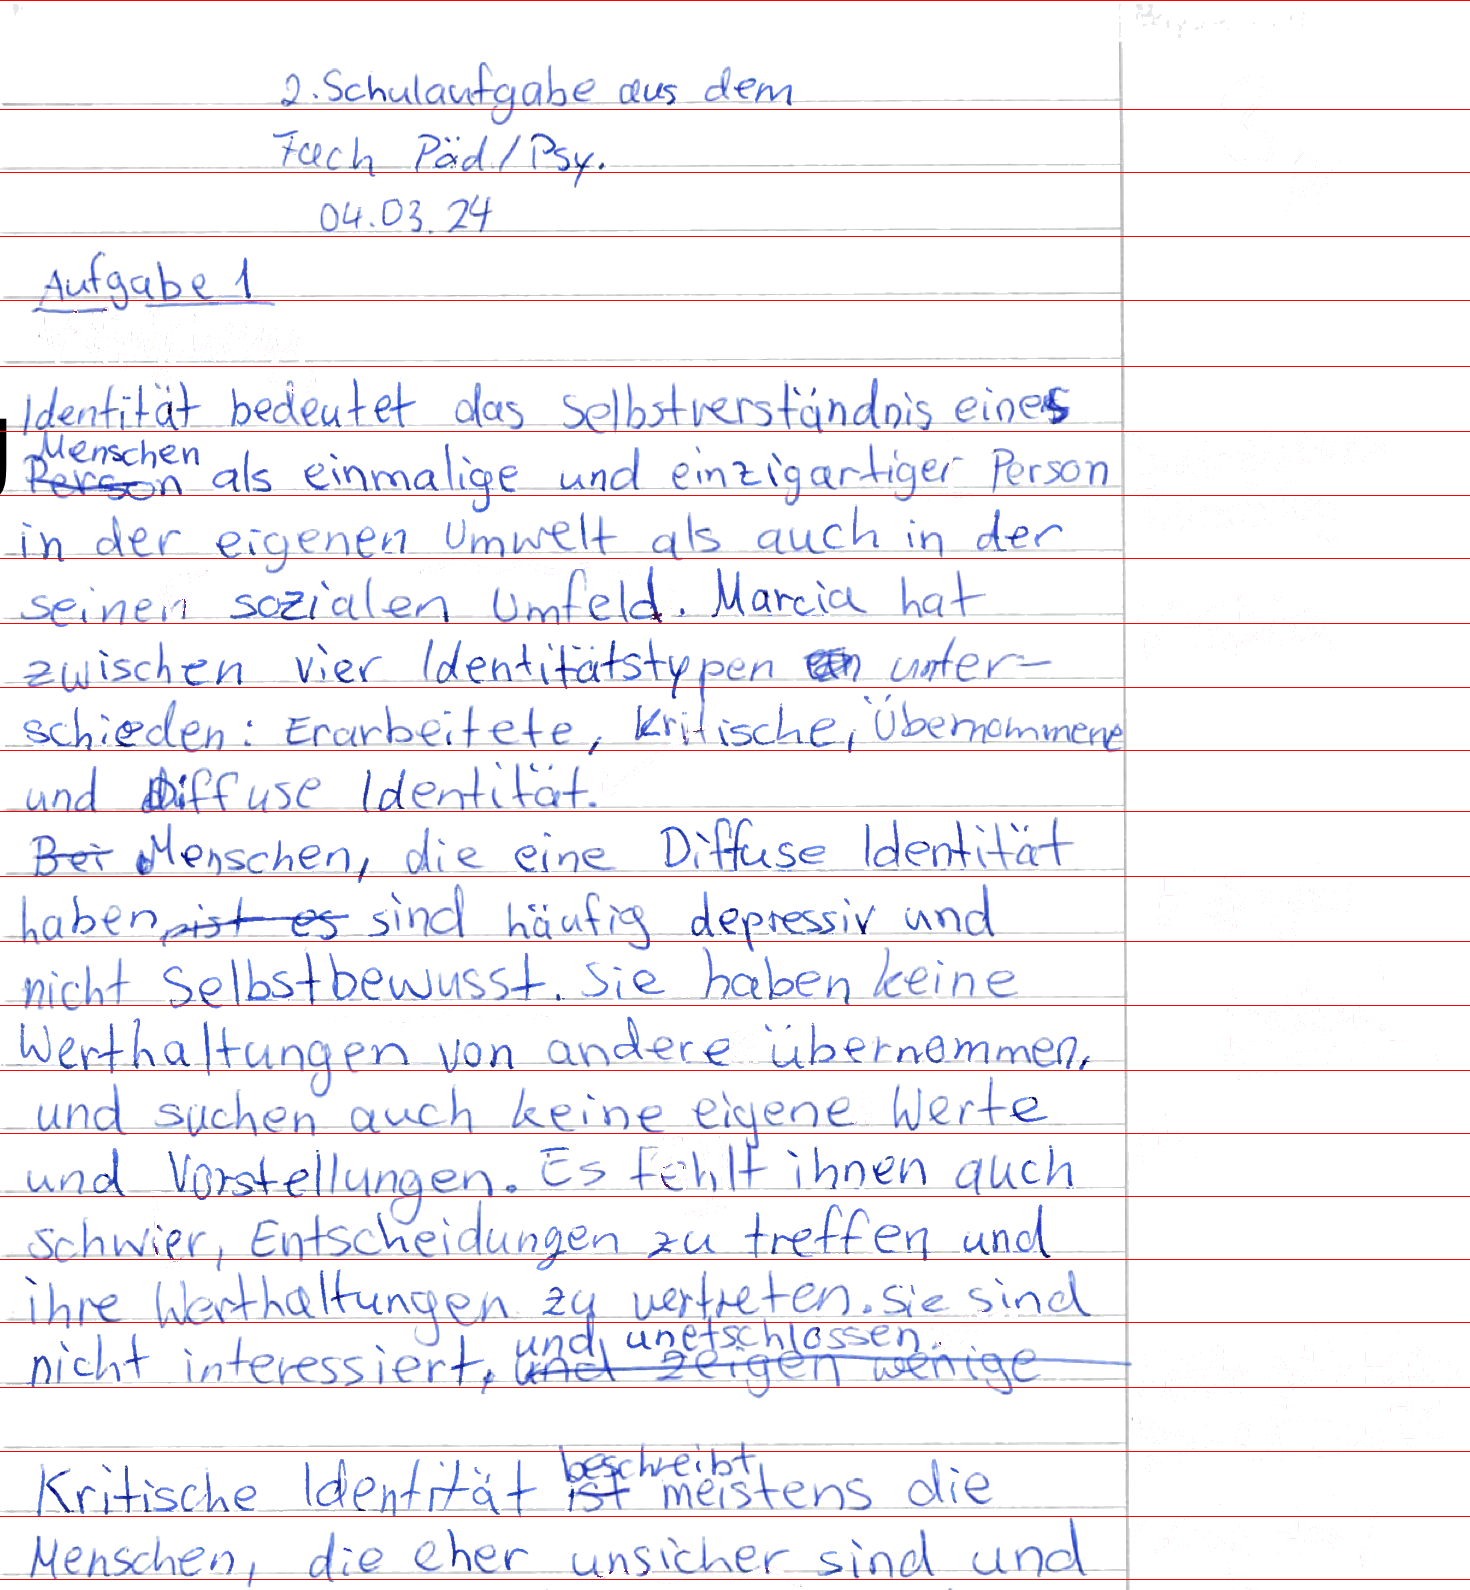 2. Schulaufgabe aus dem
Fach Päd/Psy.
04.03.24
Aufgabe 1
Identität bedeutet das Selbstverständnis eines
Menschen
Person als einmalige und einzigartiger Person
in der eigenen Umwelt als auch in der
seinen sozialen Umfeld. Marcia hat
zwischen vier Identitätstypen unter-
schieden: Erarbeitete, Kritische, Übernommene
und Diffuse Identität.
Bei Menschen, die eine Diffuse Identität
haben, ist es sind häufig depressiv und
nicht Selbstbewusst. Sie haben keine
Werthaltungen von andere übernommen,
und suchen auch keine eigene Werte
und Vorstellungen. Es fehlt ihnen auch
schwier, Entscheidungen zu treffen und
ihre Werthaltungen zu vertreten. Sie sind
und unetschlossen.
nicht interessiert, und zeigen wenige
beschreibt
Kritische Identität ist meistens die
Menschen, die eher unsicher sind und